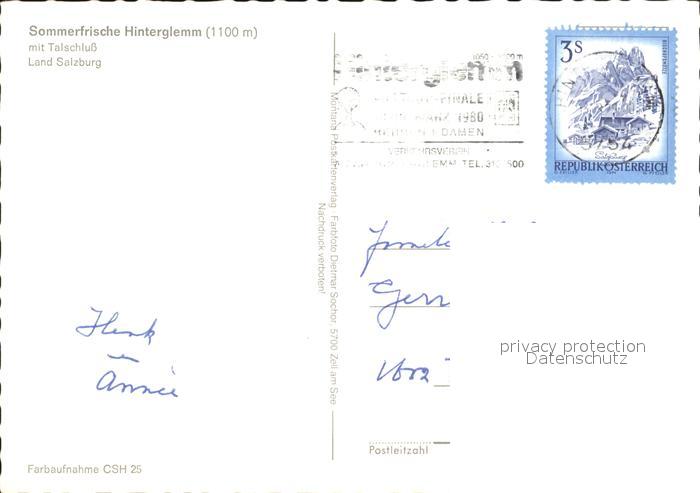 Sommerfrische Hinterglemm (1100 m)
mit Talschluß
Land Salzburg
FINALE
MÄRZ 1980
DAMEN
VERKEHRSVEREIN
TEL.
3S
5754
REPUBLIK ÖSTERREICH
Montana Postkartenverlag Farbfoto Dietmar Sochor, 5700 Zell am See
Nachdruck verboten!
Henk
Annie
privacy protection
Datenschutz
Postleitzahl
Farbaufnahme CSH 25